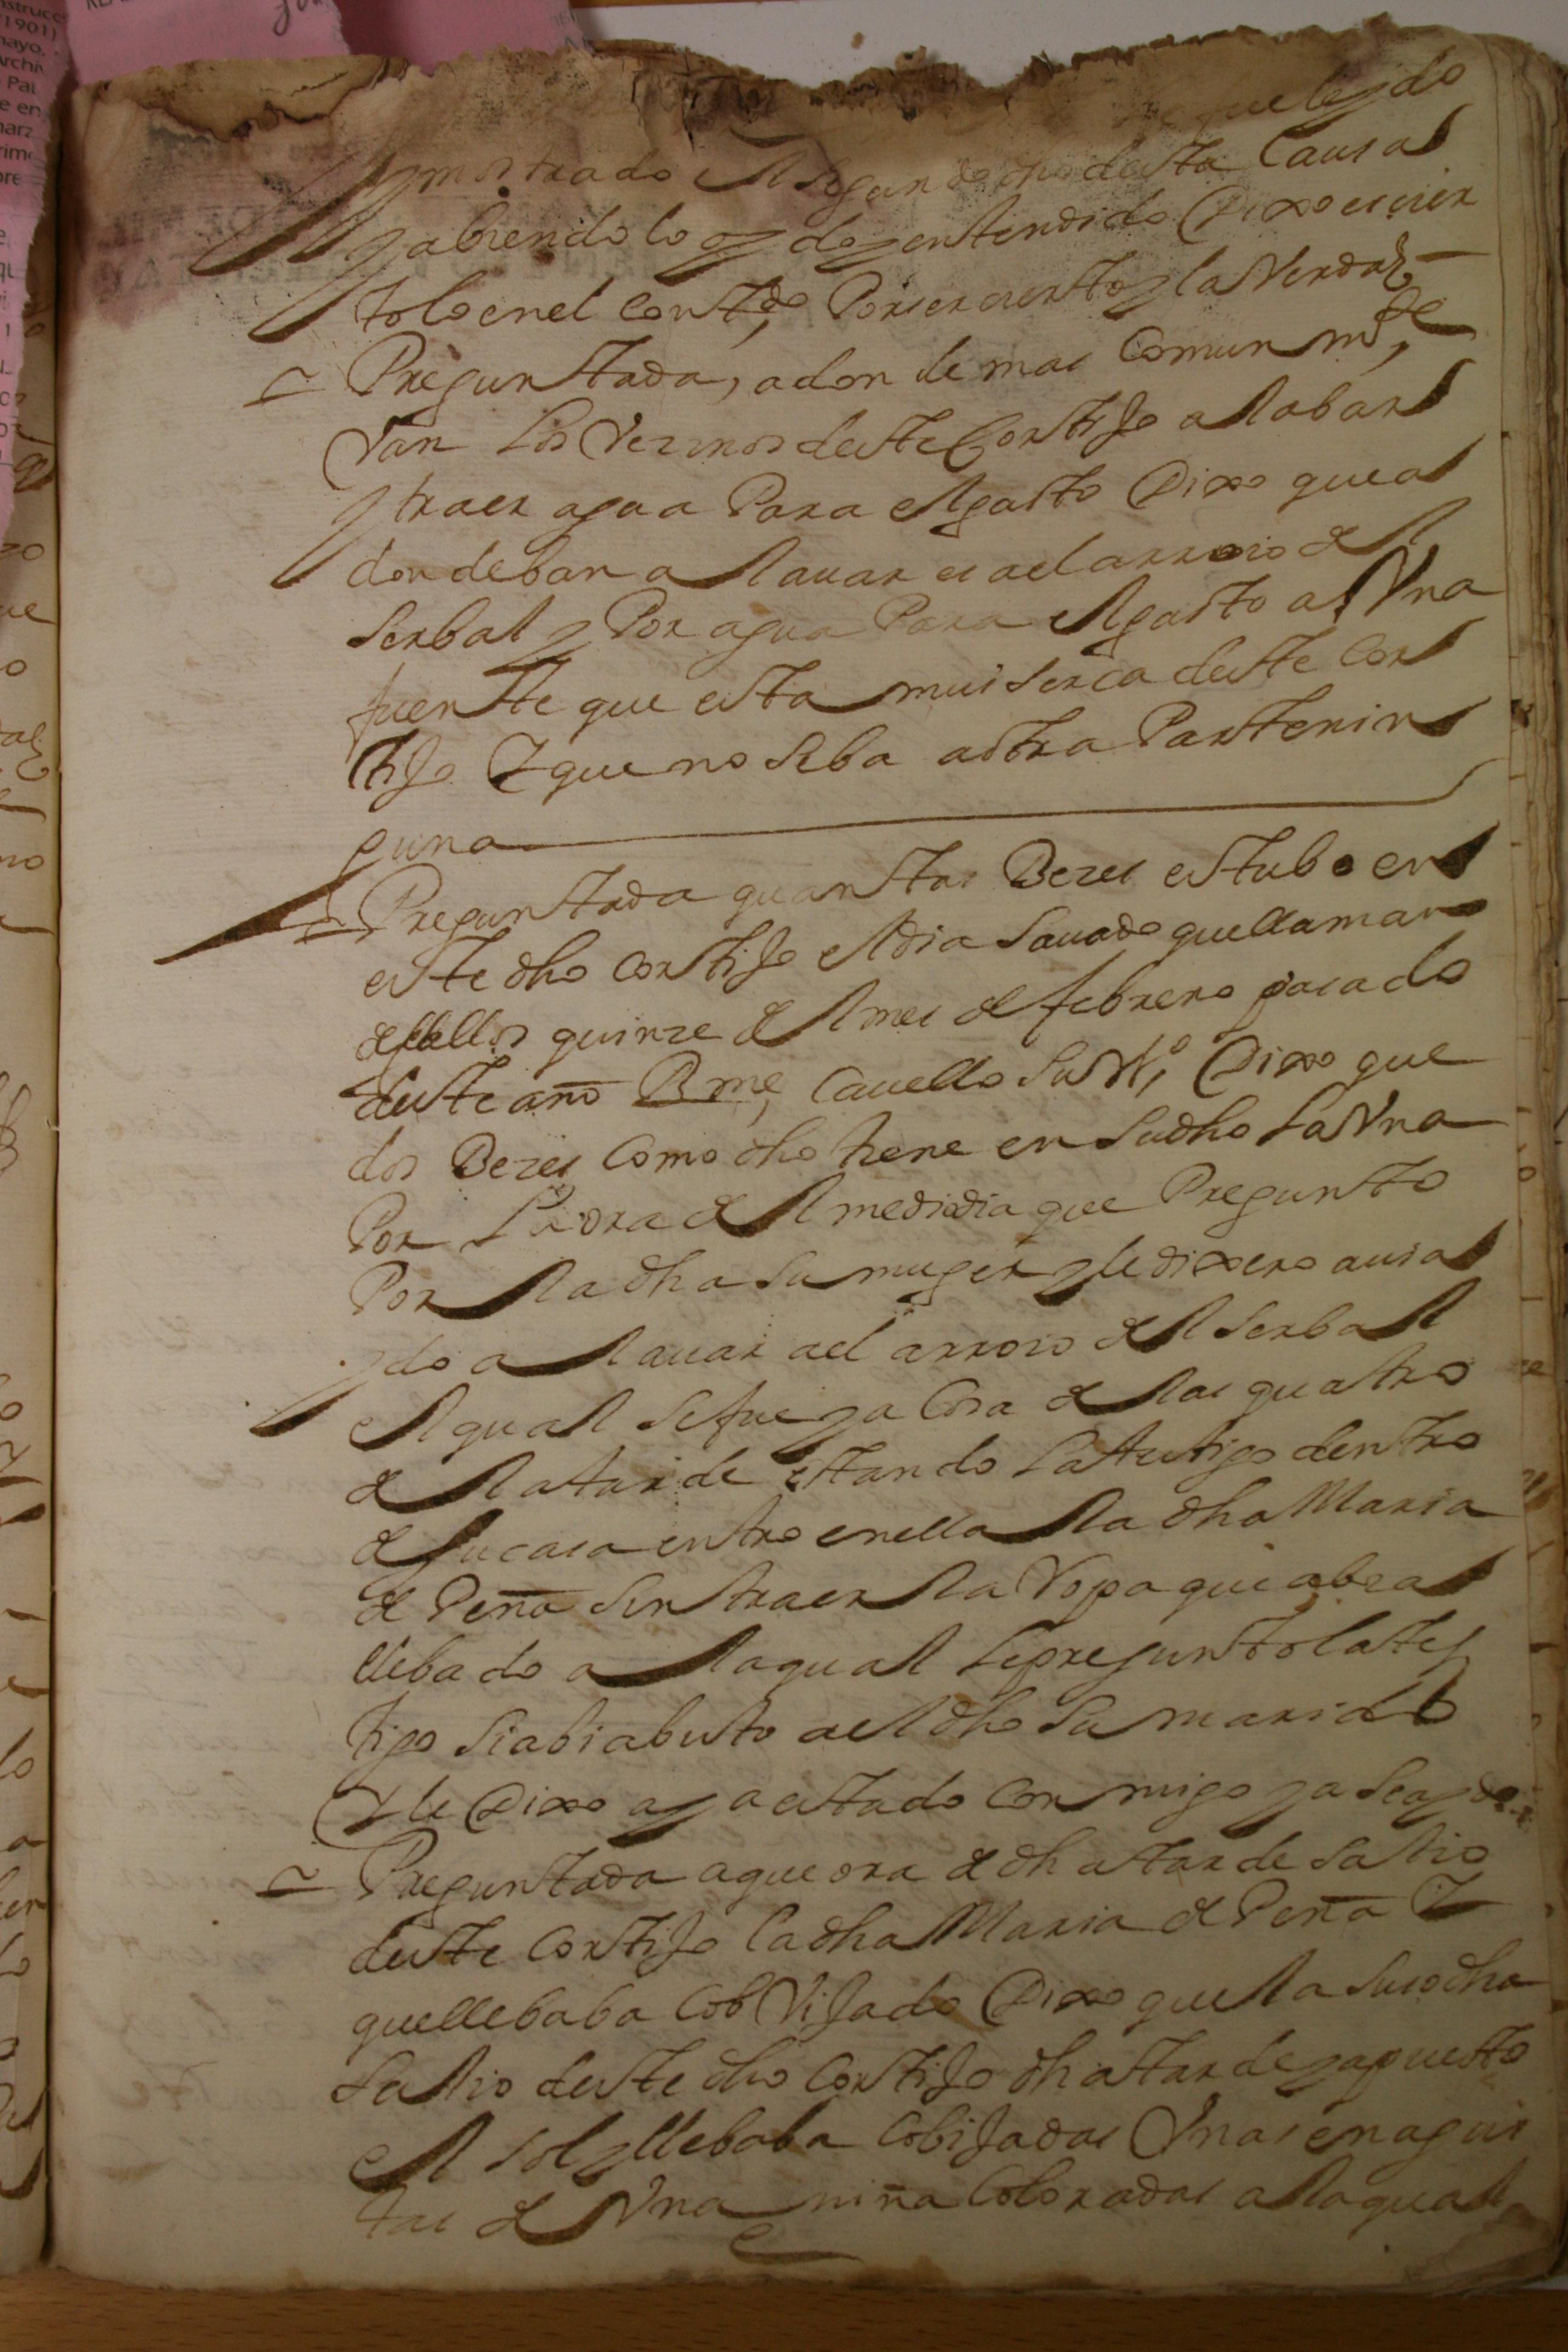 que leydo
y mostrado el segundo dho desta causa
y abiendolo oydo y entendido Dixo es cier
to lo en el contdo, Por ser cierto y la Verdad
Preguntada, adonde mas comun mte,
Van los Vezinos deste Cortijo a labar
y traer agua Para el gasto Dixo que a
donde ban a lauar es a el arroio del
serbal y Por agua Para el gasto a Una
fuente que esta mui serca deste cor
tijo Y que no se ba a otra Parte nin
guna
Preguntada quantas Bezes estubo en
este dho cortijo el dia sauado que llaman
de quinze del mes de febrero pasado
deste año Bme, Cauello su Mo, Dixo que
dos Bezes como dho tiene en su dho la Una
Por la ora del mediodia que Pregunto
Por la dha su muger y le dixero auia
ydo a lauar a el arroio del serbal
el qual se fue y a cosa de las quatro
de la tarde estando la testigo dentro
de su casa entro en ella la dha Maria
de Peña sin traer la Ropa que abia
llebado a la qual le pregunto la tes
tigo si abia bisto a el dho su marido
Y le Dixo aya estado conmigo ya se a ydo
Preguntada a que ora de dha tarde salio
deste cortijo la dha Maria de Peña Y
que llebaba cobVijado Dixo que la susodha
salio deste dho cortijo dha tarde ya puesto
el sol y llebaba cobijadas Unas enagui
tas de Una niña coloradas a la qual